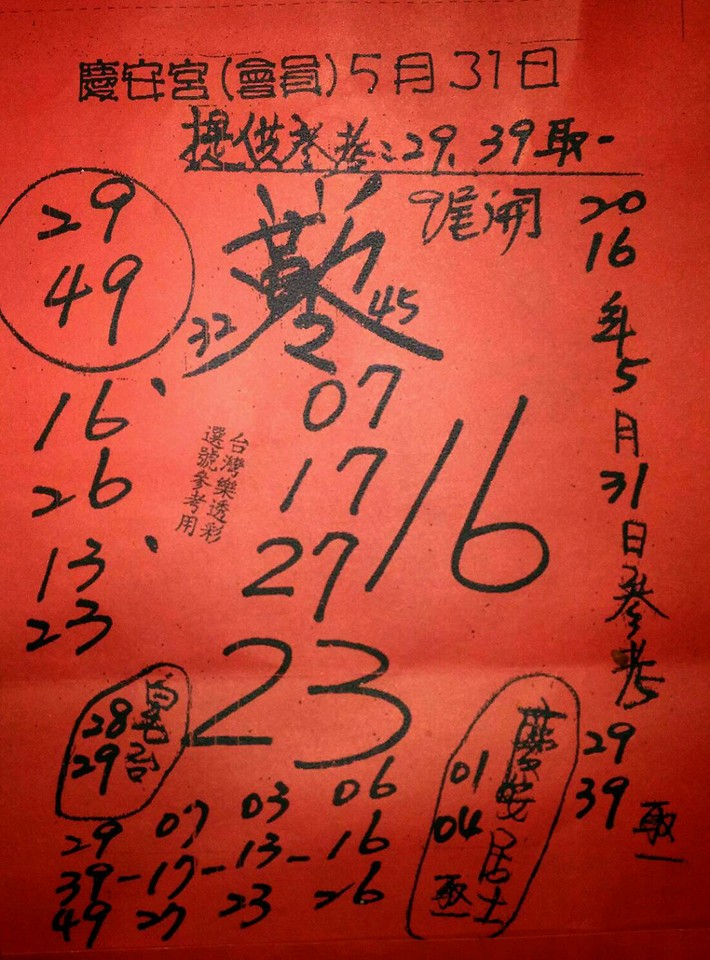 慶安宮(會員)5月31日
提供參考:29、39取一
9尾開
29
49
32
45
16、
26
13、
23
07
17
27
16
23
台灣樂透彩
選號參考用
2016年5月31日參考
29
39
取一
28
29
慶安居士
01
04
取一
29 07 03 06
39-17-13-16
49 27 23 26